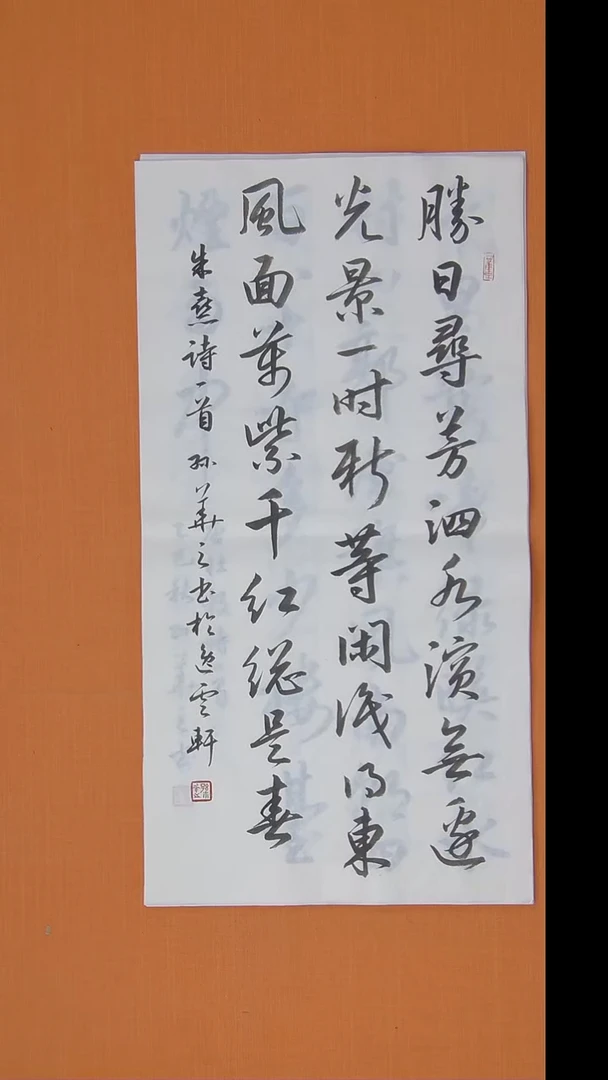 勝日尋芳泗水濱無邊
光景一时新等閑識得東
風面萬紫千红総是春
朱熹詩一首孙華之书於逸雲軒